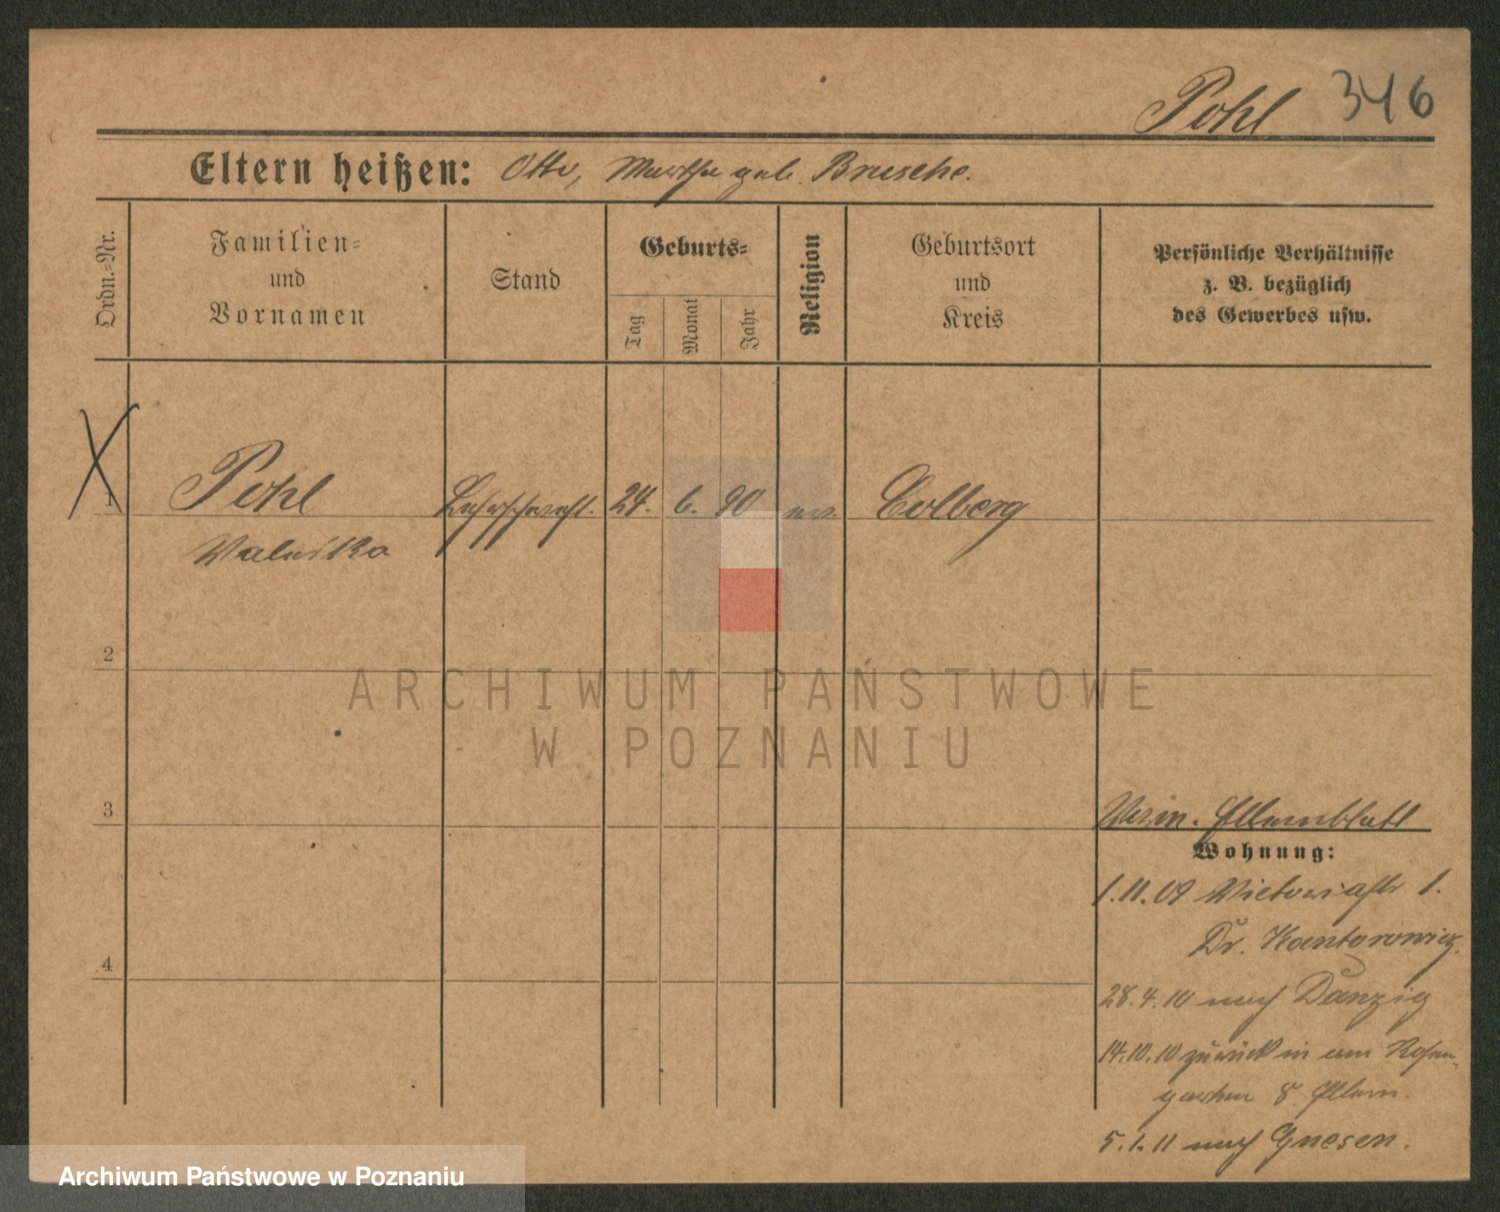 Pohl 346
Eltern heißen: Otto, Martha geb. Brusche.
Ordn.-Nr.
Familien-
und
Vornamen
Stand
Geburts-
Tag
Monat
Jahr
Religion
Geburtsort
und
Kreis
Persönliche Verhältnisse
z. B. bezüglich
des Gewerbes usw.
1 Pohl 24. 6. 90 ev. Colberg
Valeska
2
ARCHIWUM PAŃSTWOWE
W POZNANIU
3
Elternblatt
Wohnung:
1.11.09 Victoriastr 1.
Dr. Kantorowicz.
4
28.4.10 nach Danzig
14.10.10 zurück in am Rosen-
garten 8. Eltern.
5.1.11 nach Gnesen.
Archiwum Państwowe w Poznaniu